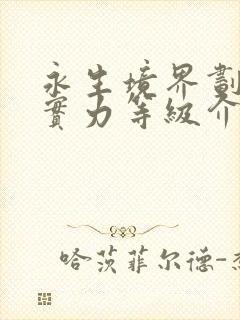 永生境界劃
實力等級介
哈茨菲尔德-杰